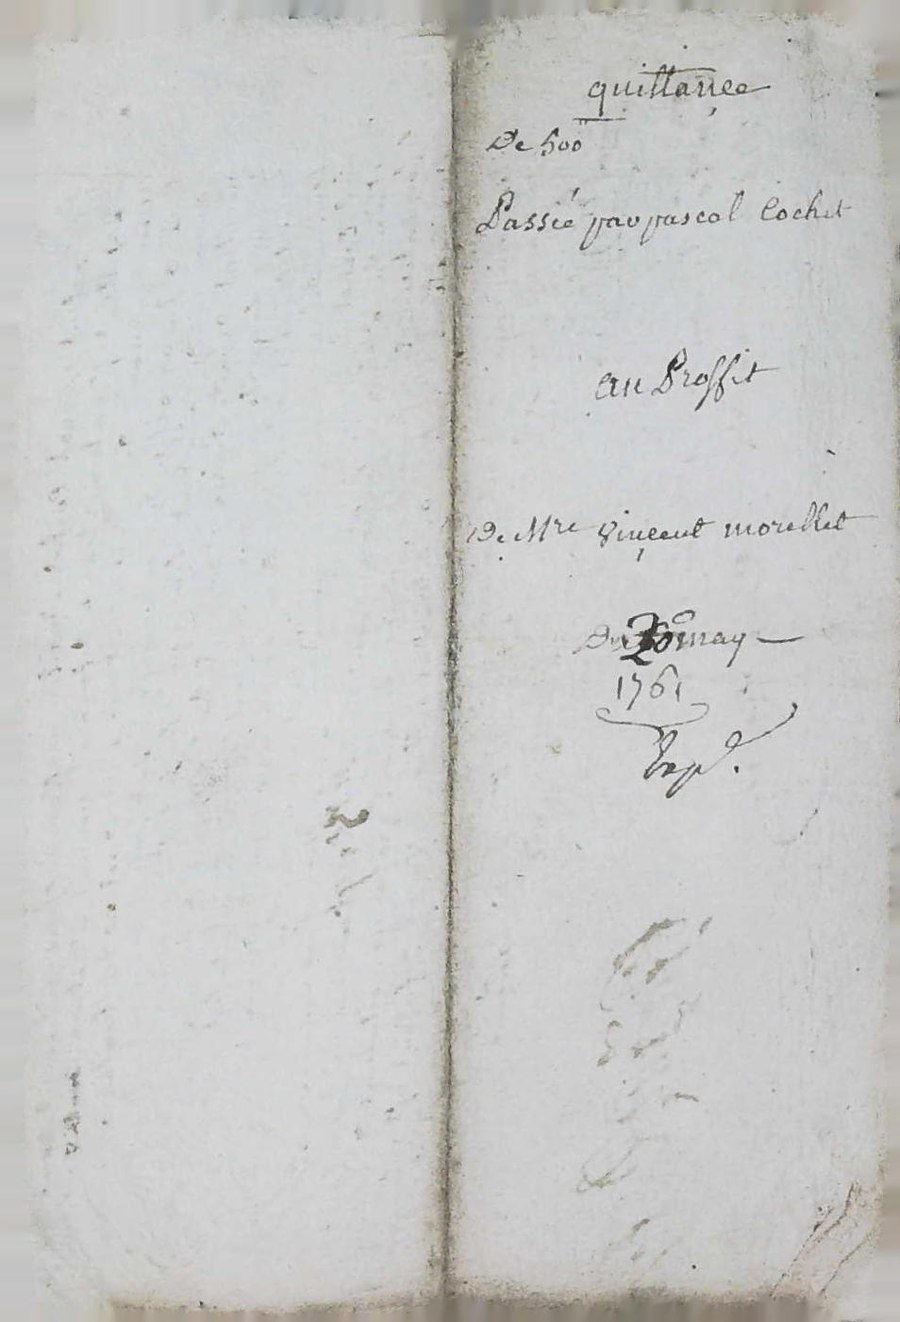 quittance
De 500
Passée par pascal Cochet
au Proffit
De Mre Vincent morellet
Du 20 may
1761
Exp.